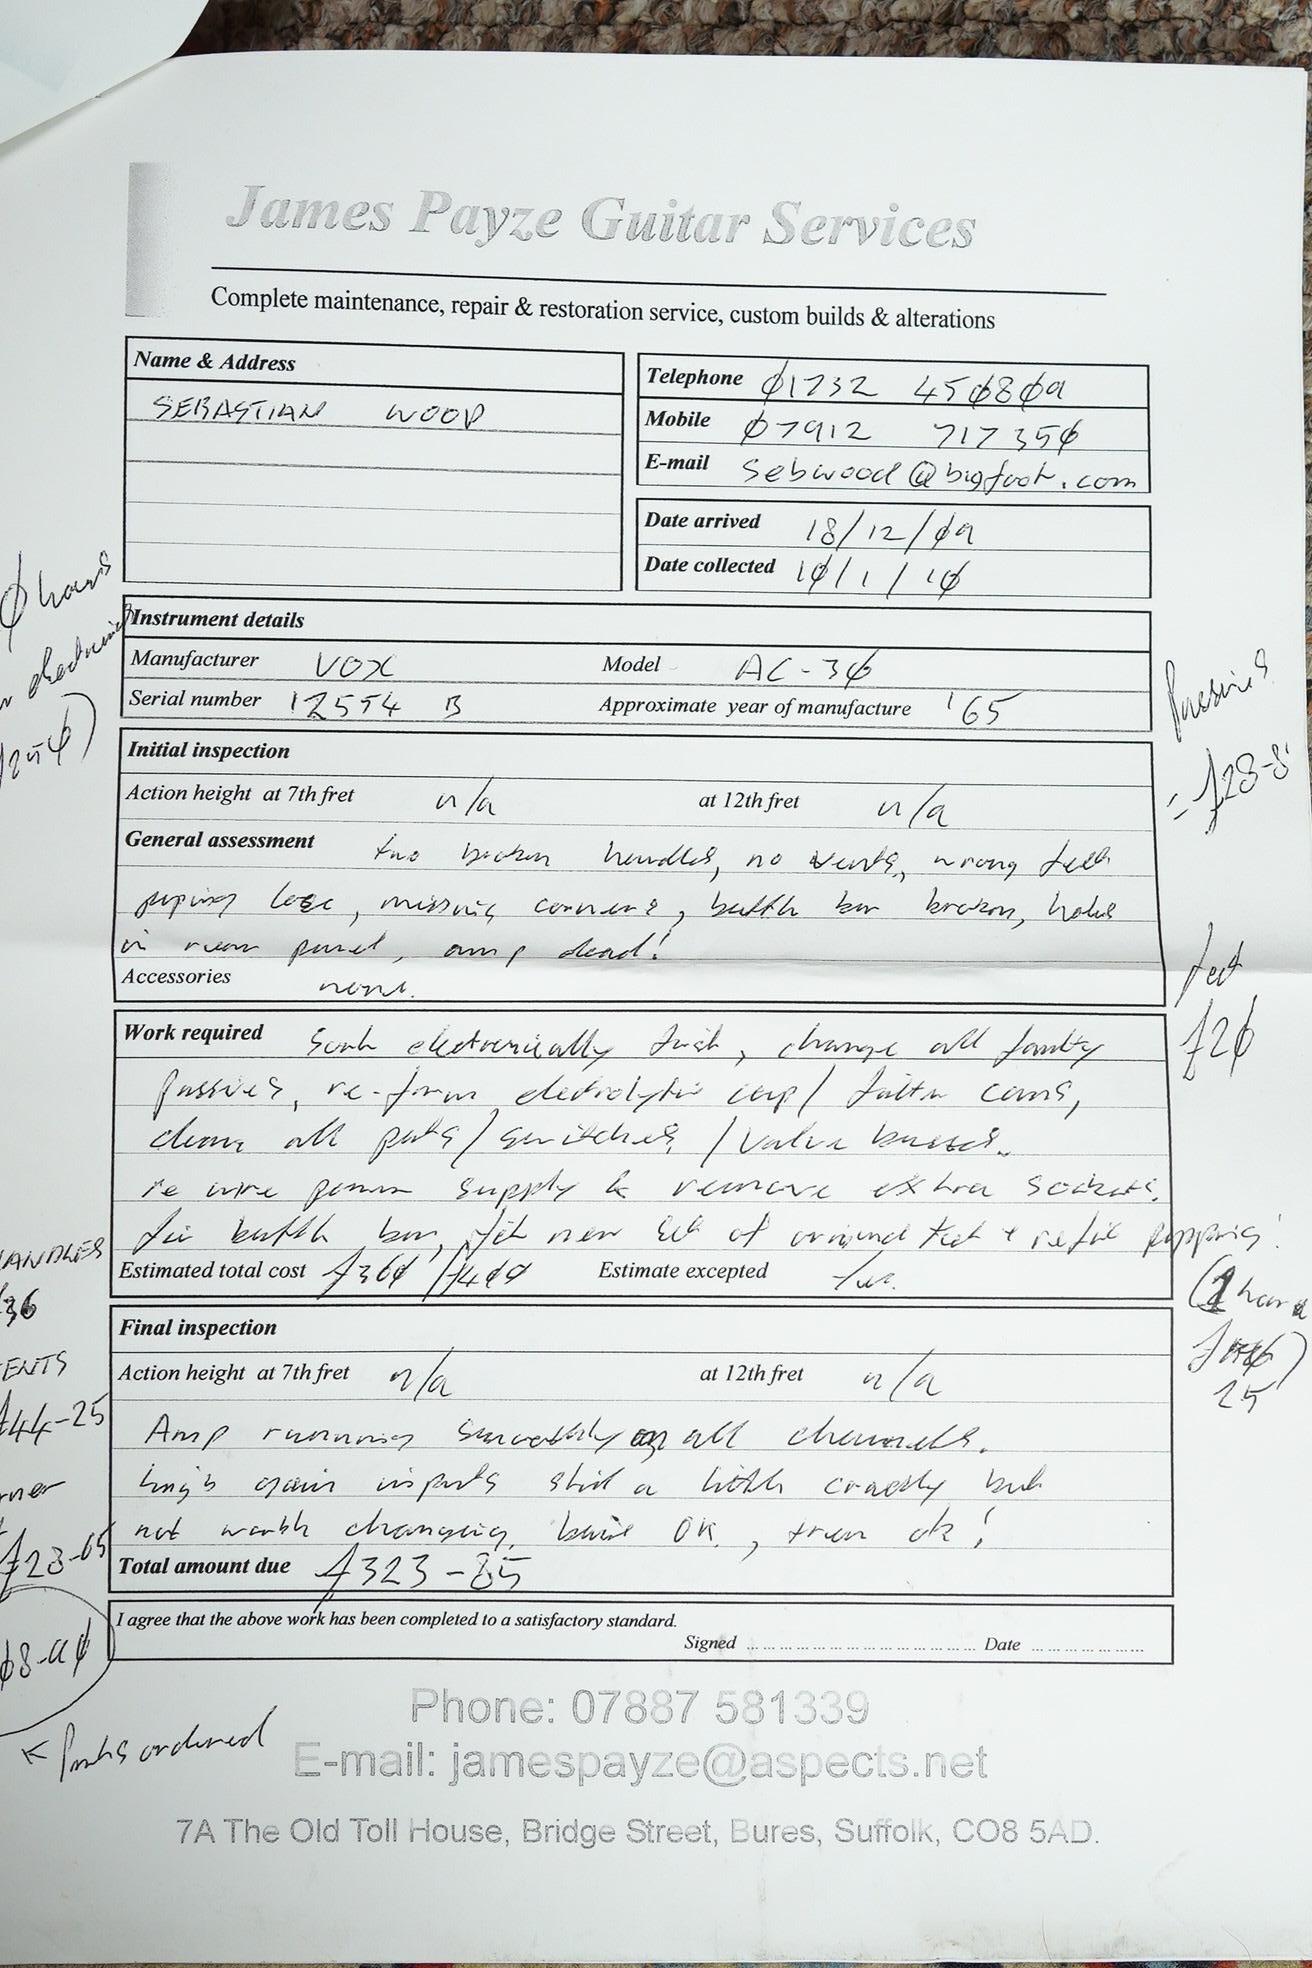 James Payze Guitar Services
Complete maintenance, repair & restoration service, custom builds & alterations
Name & Address
SEBASTIAN WOOD
Telephone 01732 450809
Mobile 07912 717350
E-mail sebwood@bigfoot.com
Date arrived 18/12/09
Date collected 10/1/10
Instrument details
Manufacturer VOX Model AC-30
Serial number 12554 B Approximate year of manufacture '65
Initial inspection
Action height at 7th fret n/a at 12th fret n/a
General assessment two broken handles, no vents, wrong feet
piping lose, missing corners, butth bar broken, holes
in rear panel, amp dead!
Accessories none.
Work required electronically first, change all faulty
passives, re-form electrolytic cap/ cans,
clean all pots/switches/valve bases.
re wire power supply & remove extra sockets.
fix butth bar, fit new set of original feet + refix pipping!
Estimated total cost £360/£400 Estimate excepted Yes.
Final inspection
Action height at 7th fret n/a at 12th fret n/a
Amp running smoothly on all channels.
high gain inputs still a little crackly but
not worth changing, OK, ok!
Total amount due £323-85
I agree that the above work has been completed to a satisfactory standard.
Signed Date
Phone: 07887 581339
E-mail: jamespayze@aspects.net
7A The Old Toll House, Bridge Street, Bures, Suffolk, CO8 5AD.
hours
ANDLES
36
ENTS
£44-25
rner
£28-65
08-90
← Parts ordered
Passives
= £28-8
feet
£20
(1 hour
25